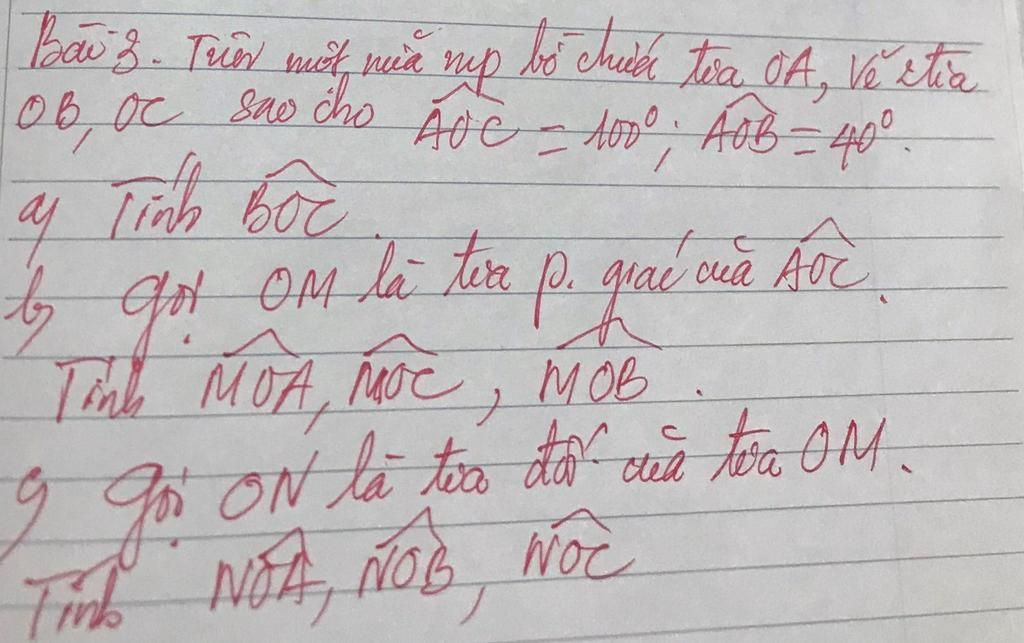 Bài 3. Trên một nửa mp bờ chứa tia OA, vẽ 2 tia
OB, OC sao cho AOC = 100°; AOB = 40°.
a) Tính BOC.
b) Gọi OM là tia p. giác của AOC.
Tính MOA, MOC, MOB.
c) Gọi ON là tia đối của tia OM.
Tính NOA, NOB, NOC